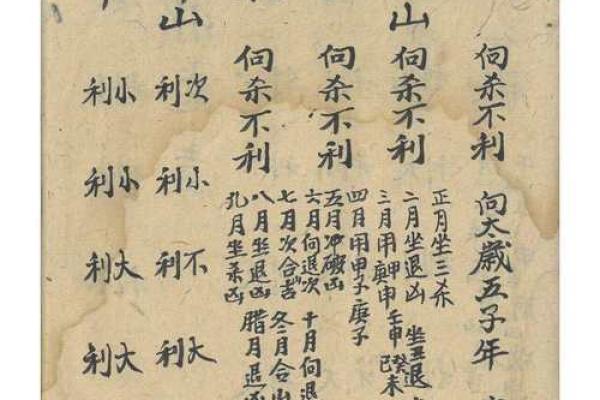 向杀不利 向太歲五子年
山 向杀不利
正月坐三杀
二月坐退凶 坐丑退
三月用甲庚申 壬申癸未
向杀不利
四月用甲子庚子
五月冲破凶
六月向退次 十月向退
向杀不利
七月次合吉 冬月合山
八月坐退凶 腊月退凶
九月坐杀凶
山 次利 小利 不利 大利
小利 小利 大利 大利